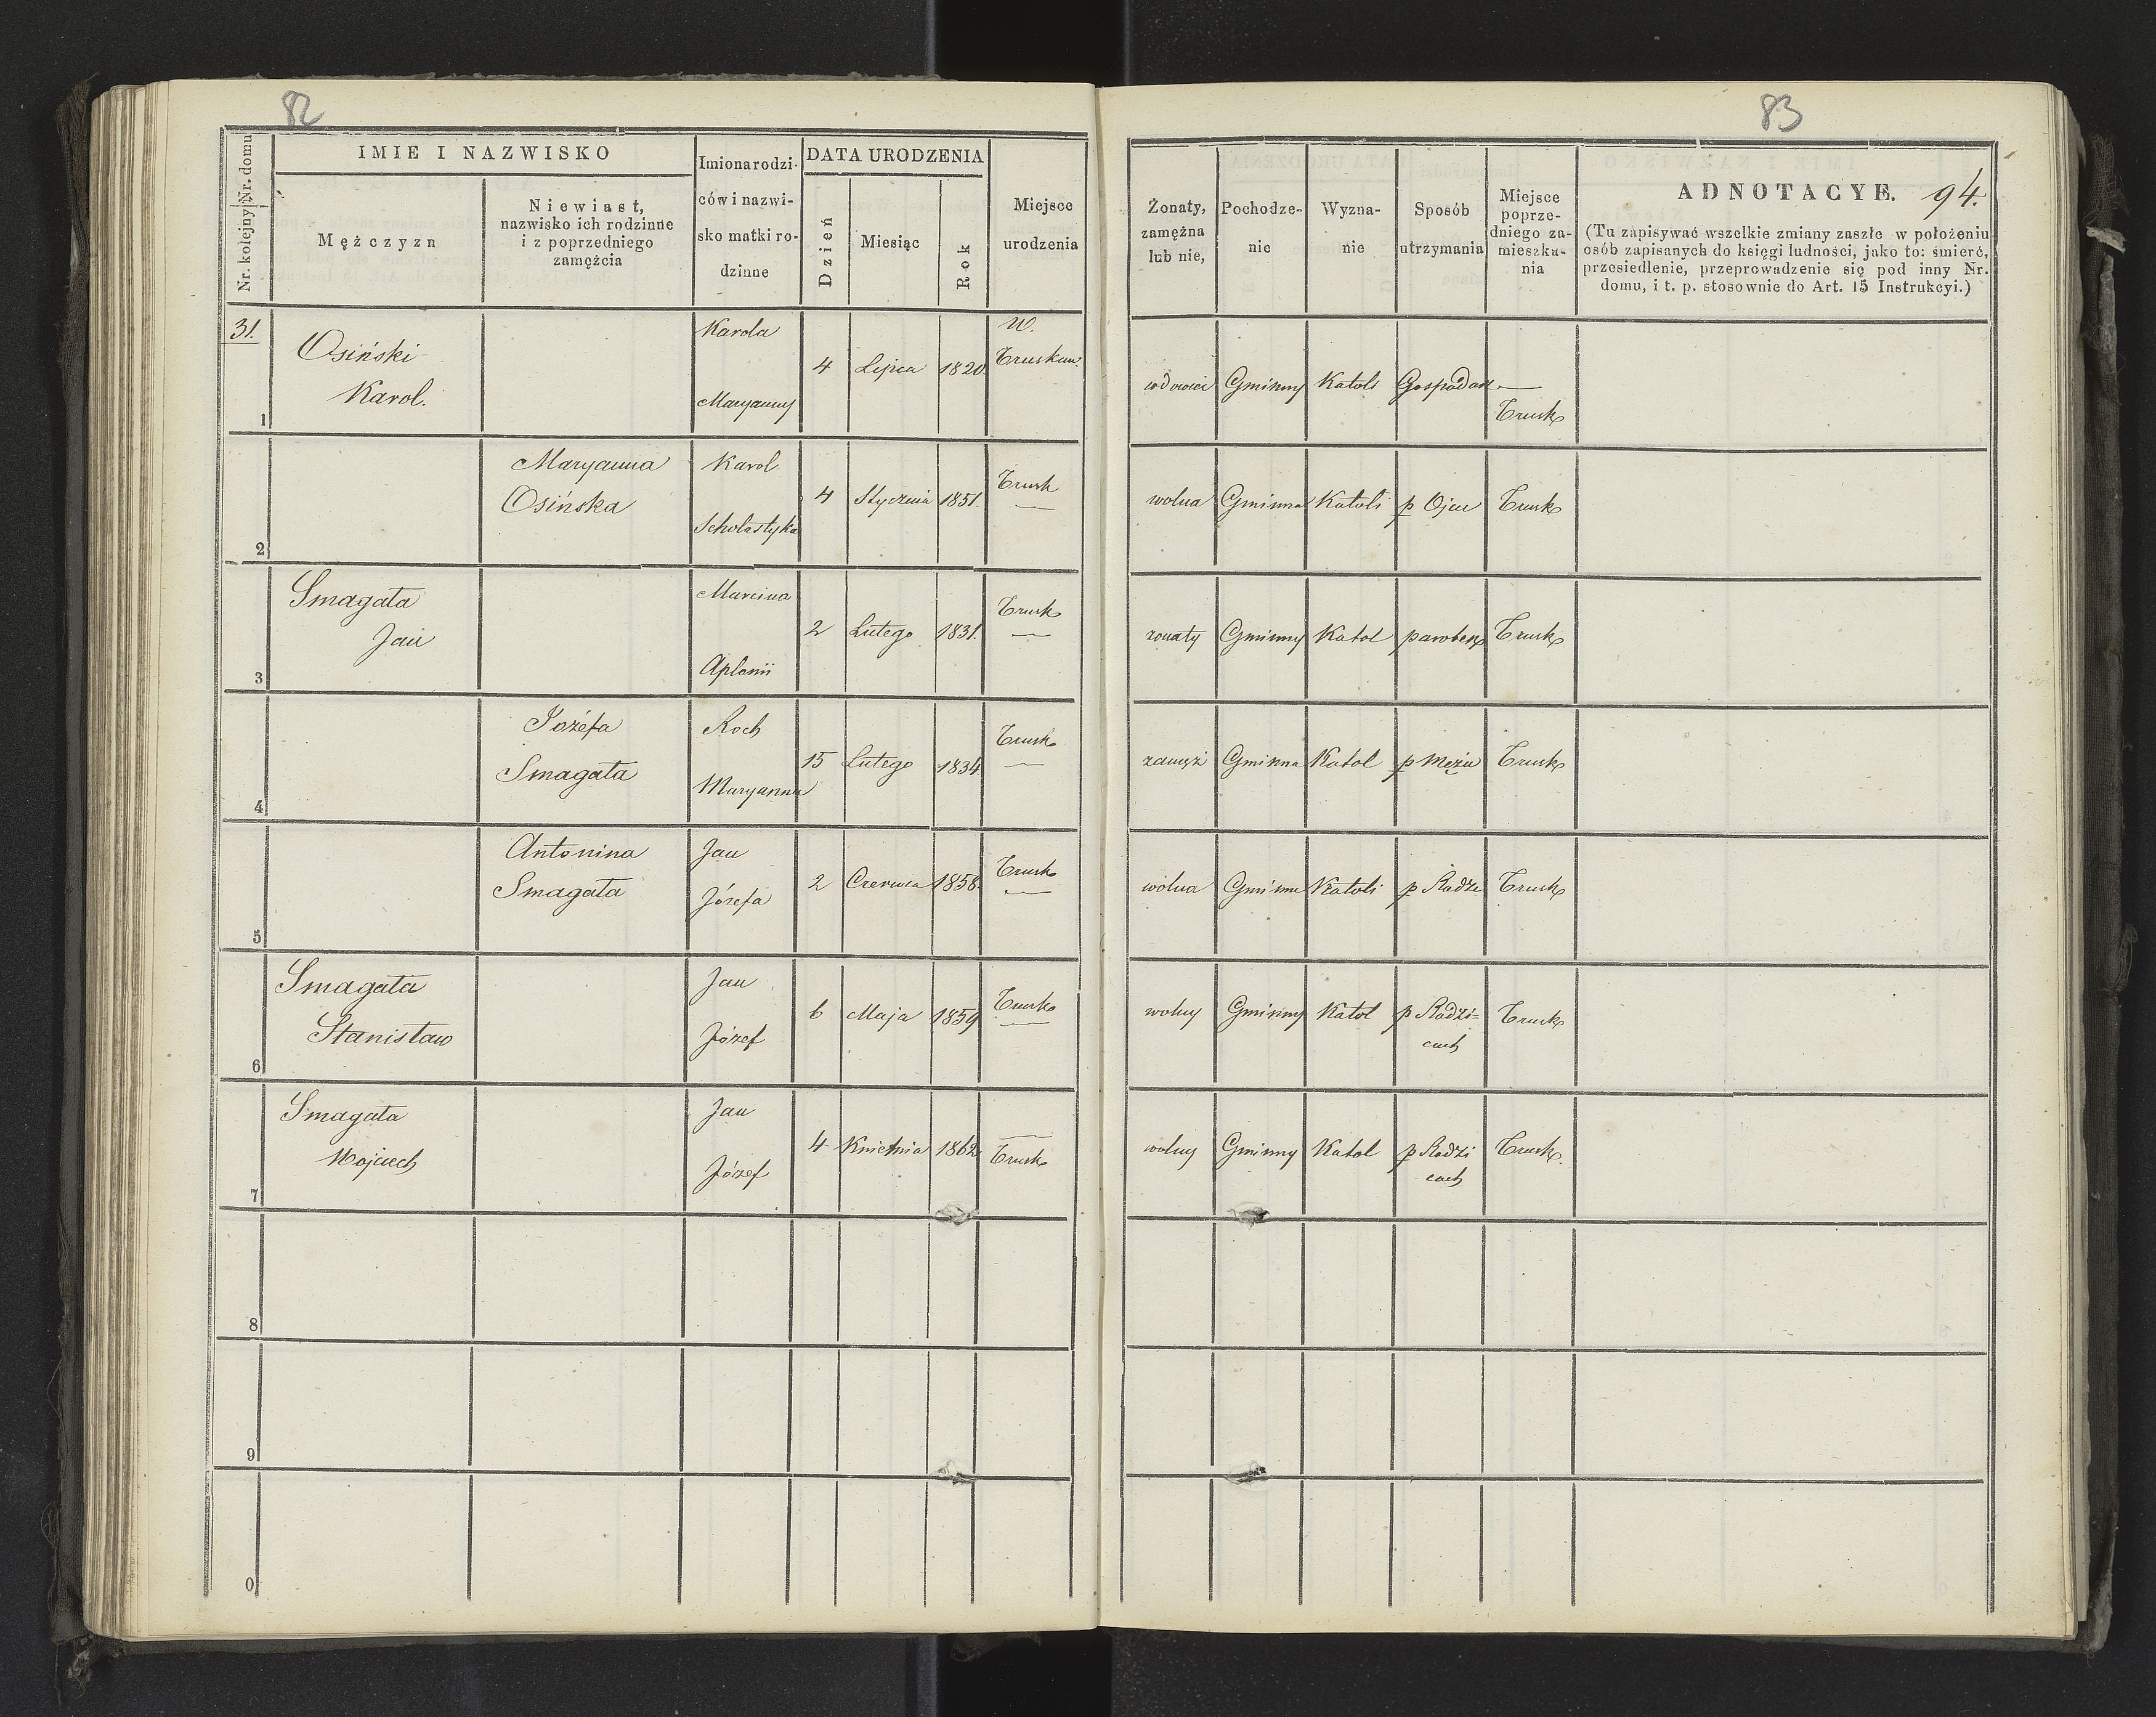 82
Nr. kolejny Nr. domu
IMIE I NAZWISKO
Mężczyzn
Niewiast,
nazwisko ich rodzinne
i z poprzedniego
zamężcia
Imiona rodzi-
ców i nazwi-
sko matki ro-
dzinne
DATA URODZENIA
Dzień
Miesiąc
Rok
Miejsce
urodzenia
31.
Osiński
Karol.
Karola
Maryanny
4 Lipca 1820.
W.
Truskaw.
1
Maryanna
Osińska
Karol
Scholastyka
4 Stycznia 1851.
Trusk
2
Smagała
Jan
Marcina
Aplonii
2 Lutego 1831.
Trusk
3
Józefa
Smagała
Roch
Maryanna
15 Lutego 1834.
Trusk
4
Antonina
Smagała
Jan
Józefa
2 Czerwca 1858.
Trusk
5
Smagała
Stanisław
Jan
Józef
6 Maja 1859
Trusk
6
Smagała
Wojciech
Jan
Józef
4 Kwietnia 1862
Trusk
7
8
9
0
83
Żonaty,
zamężna
lub nie,
Pochodze-
nie
Wyzna-
nie
Sposób
utrzymania
Miejsce
poprze-
dniego za-
mieszka-
nia
ADNOTACYE. 94.
(Tu zapisywać wszelkie zmiany zaszłe w położeniu
osób zapisanych do księgi ludności, jako to: śmierć,
przesiedlenie, przeprowadzenie się pod inny Nr.
domu, i t. p. stosownie do Art. 15 Instrukcyi.)
wdowiec Gminny Katoli Gospodarz
Trusk
wolna Gminna Katoli p Ojcu Trusk
żonaty Gminny Katol parobek Trusk
zamęż Gminna Katol p Mężu Trusk
wolna Gminna Katoli p Rodzi Trusk
wolny Gminny Katol p Rodzi=
cach
Trusk
wolny Gminny Katol p Rodzi
cach
Trusk.